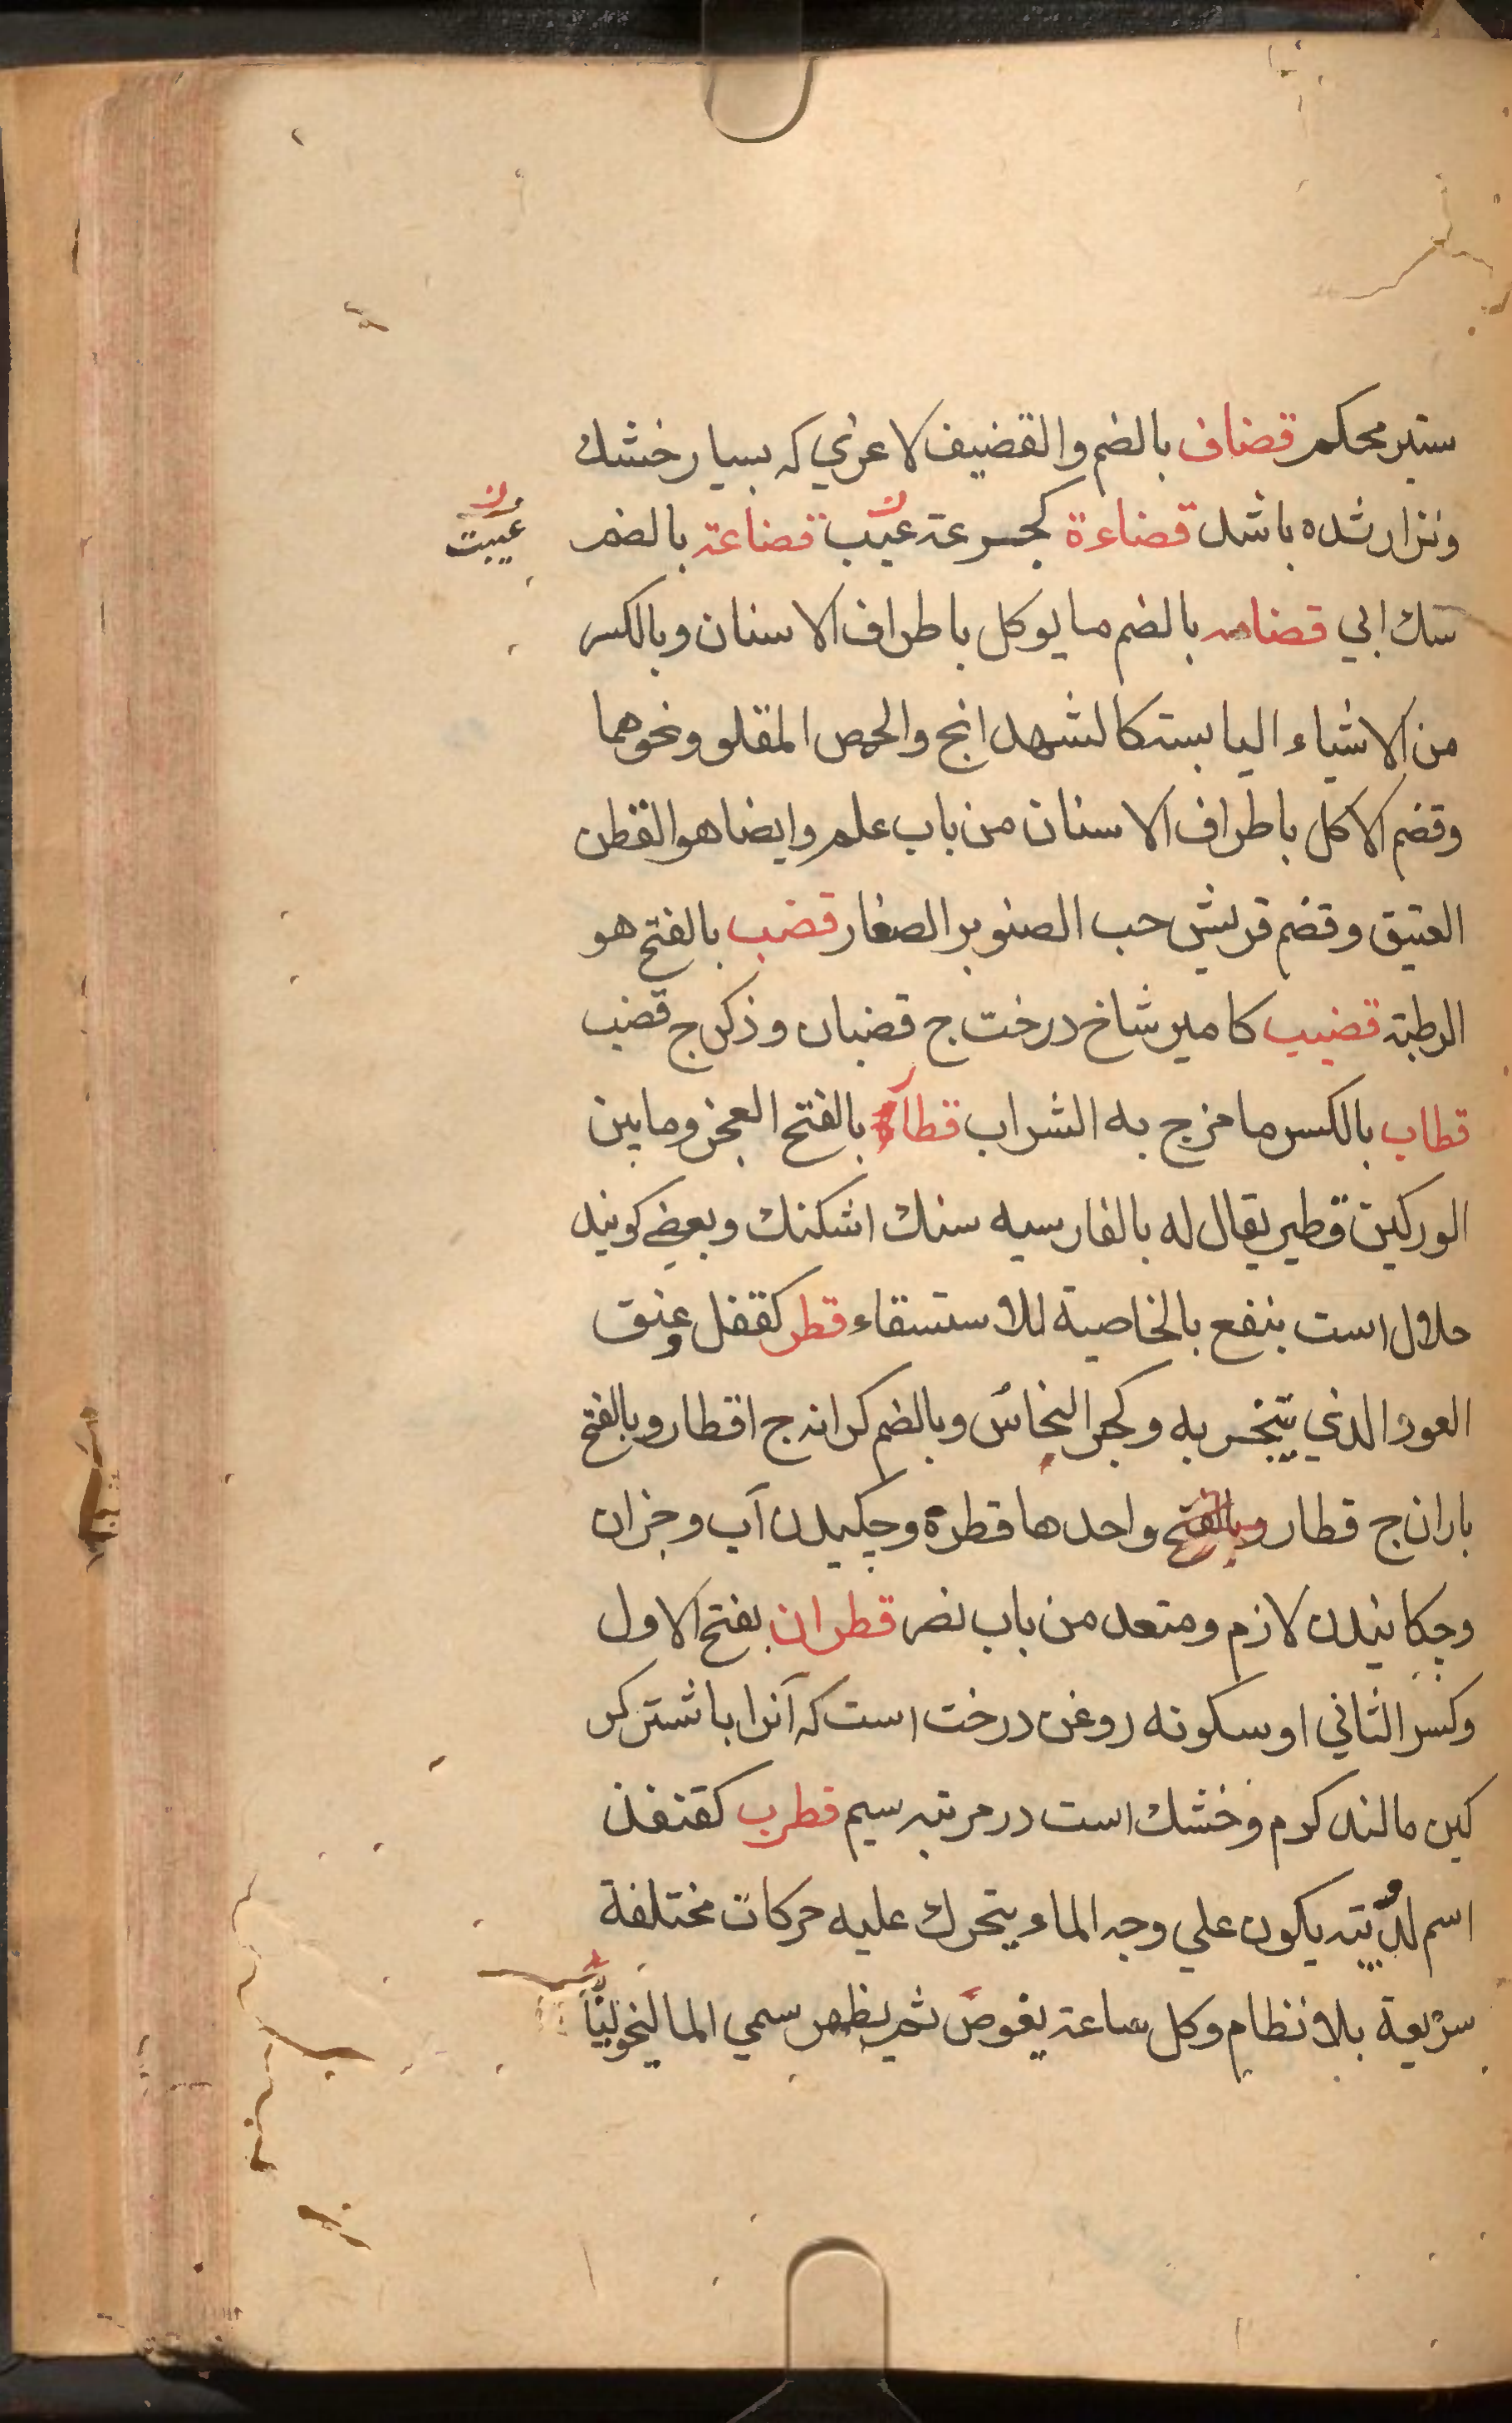 ستبر محکم قضاف بالضم والقضیف لاغری که بسیار خشك
ونزار شده باشد قضاءة کجرعة عیب قضاعة بالضم
عیبت
سك ابی قضامه بالضم ما یوکل باطراف الاسنان وبالکسر
من الاشیاء الیابسته کالشهدانج والحمص المقلو ونحوهما
وقضم الاکل باطراف الاسنان من باب علم وایضا هو القطن
العتیق وقضم قریش حب الصنوبر الصغار قضب بالفتح هو
الرطبة قضیب کامیر شاخ درخت ج قضبان وذکر ج قضب
قطاب بالکسر ما مزج به الشراب قطاة بالفتح العجز وما بین
الورکین قطیر یقال له بالفارسیه سنك اشکنك وبعضی کویند
حلال است ینفع بالخاصیة للاستسقاء قطر کقفل وعنق
العود الذی یتبخر به وکجر النحاس وبالضم کرانه ج اقطار وبالفتح
باران ج قطار وبالفتح واحدها قطرة وچکیدن آب وجزان
وچکانیدن لازم ومتعد من باب نصر قطران بفتح الاول
وکسر الثانی او سکونه روغن درخت است که آنرا باشتر کر
کین مالند کرم وخشك است در مرتبه سیم قطرب کقنفذ
اسم لدویبته یکون علی وجه الماء یتحرك علیه حرکات مختلفة
سریعة بلا نظام وکل ساعة یغوص ثم یظهر سمی المالیخولیا